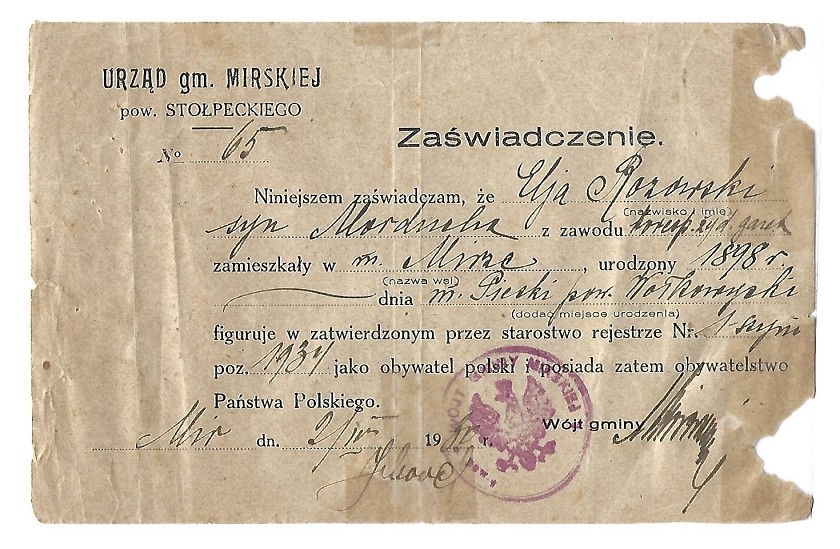 URZĄD gm. MIRSKIEJ
pow. STOŁPECKIEGO
No 65
Zaświadczenie.
Niniejszem zaświadczam, że Elja Rozowski
(nazwisko i imię)
syn Morducha z zawodu gazet
zamieszkały w m. Mirze, urodzony 1898 r
(nazwa wsi)
dnia m. Pieski pow. Wołkowyski
(dodać miejsce urodzenia)
figuruje w zatwierdzonym przez starostwo rejestrze Nr.
poz. 1934 jako obywatel polski i posiada zatem obywatelstwo
Państwa Polskiego.
WÓJT GMINY MIRSKIEJ
Wójt gminy
Mir dn. 19 r.